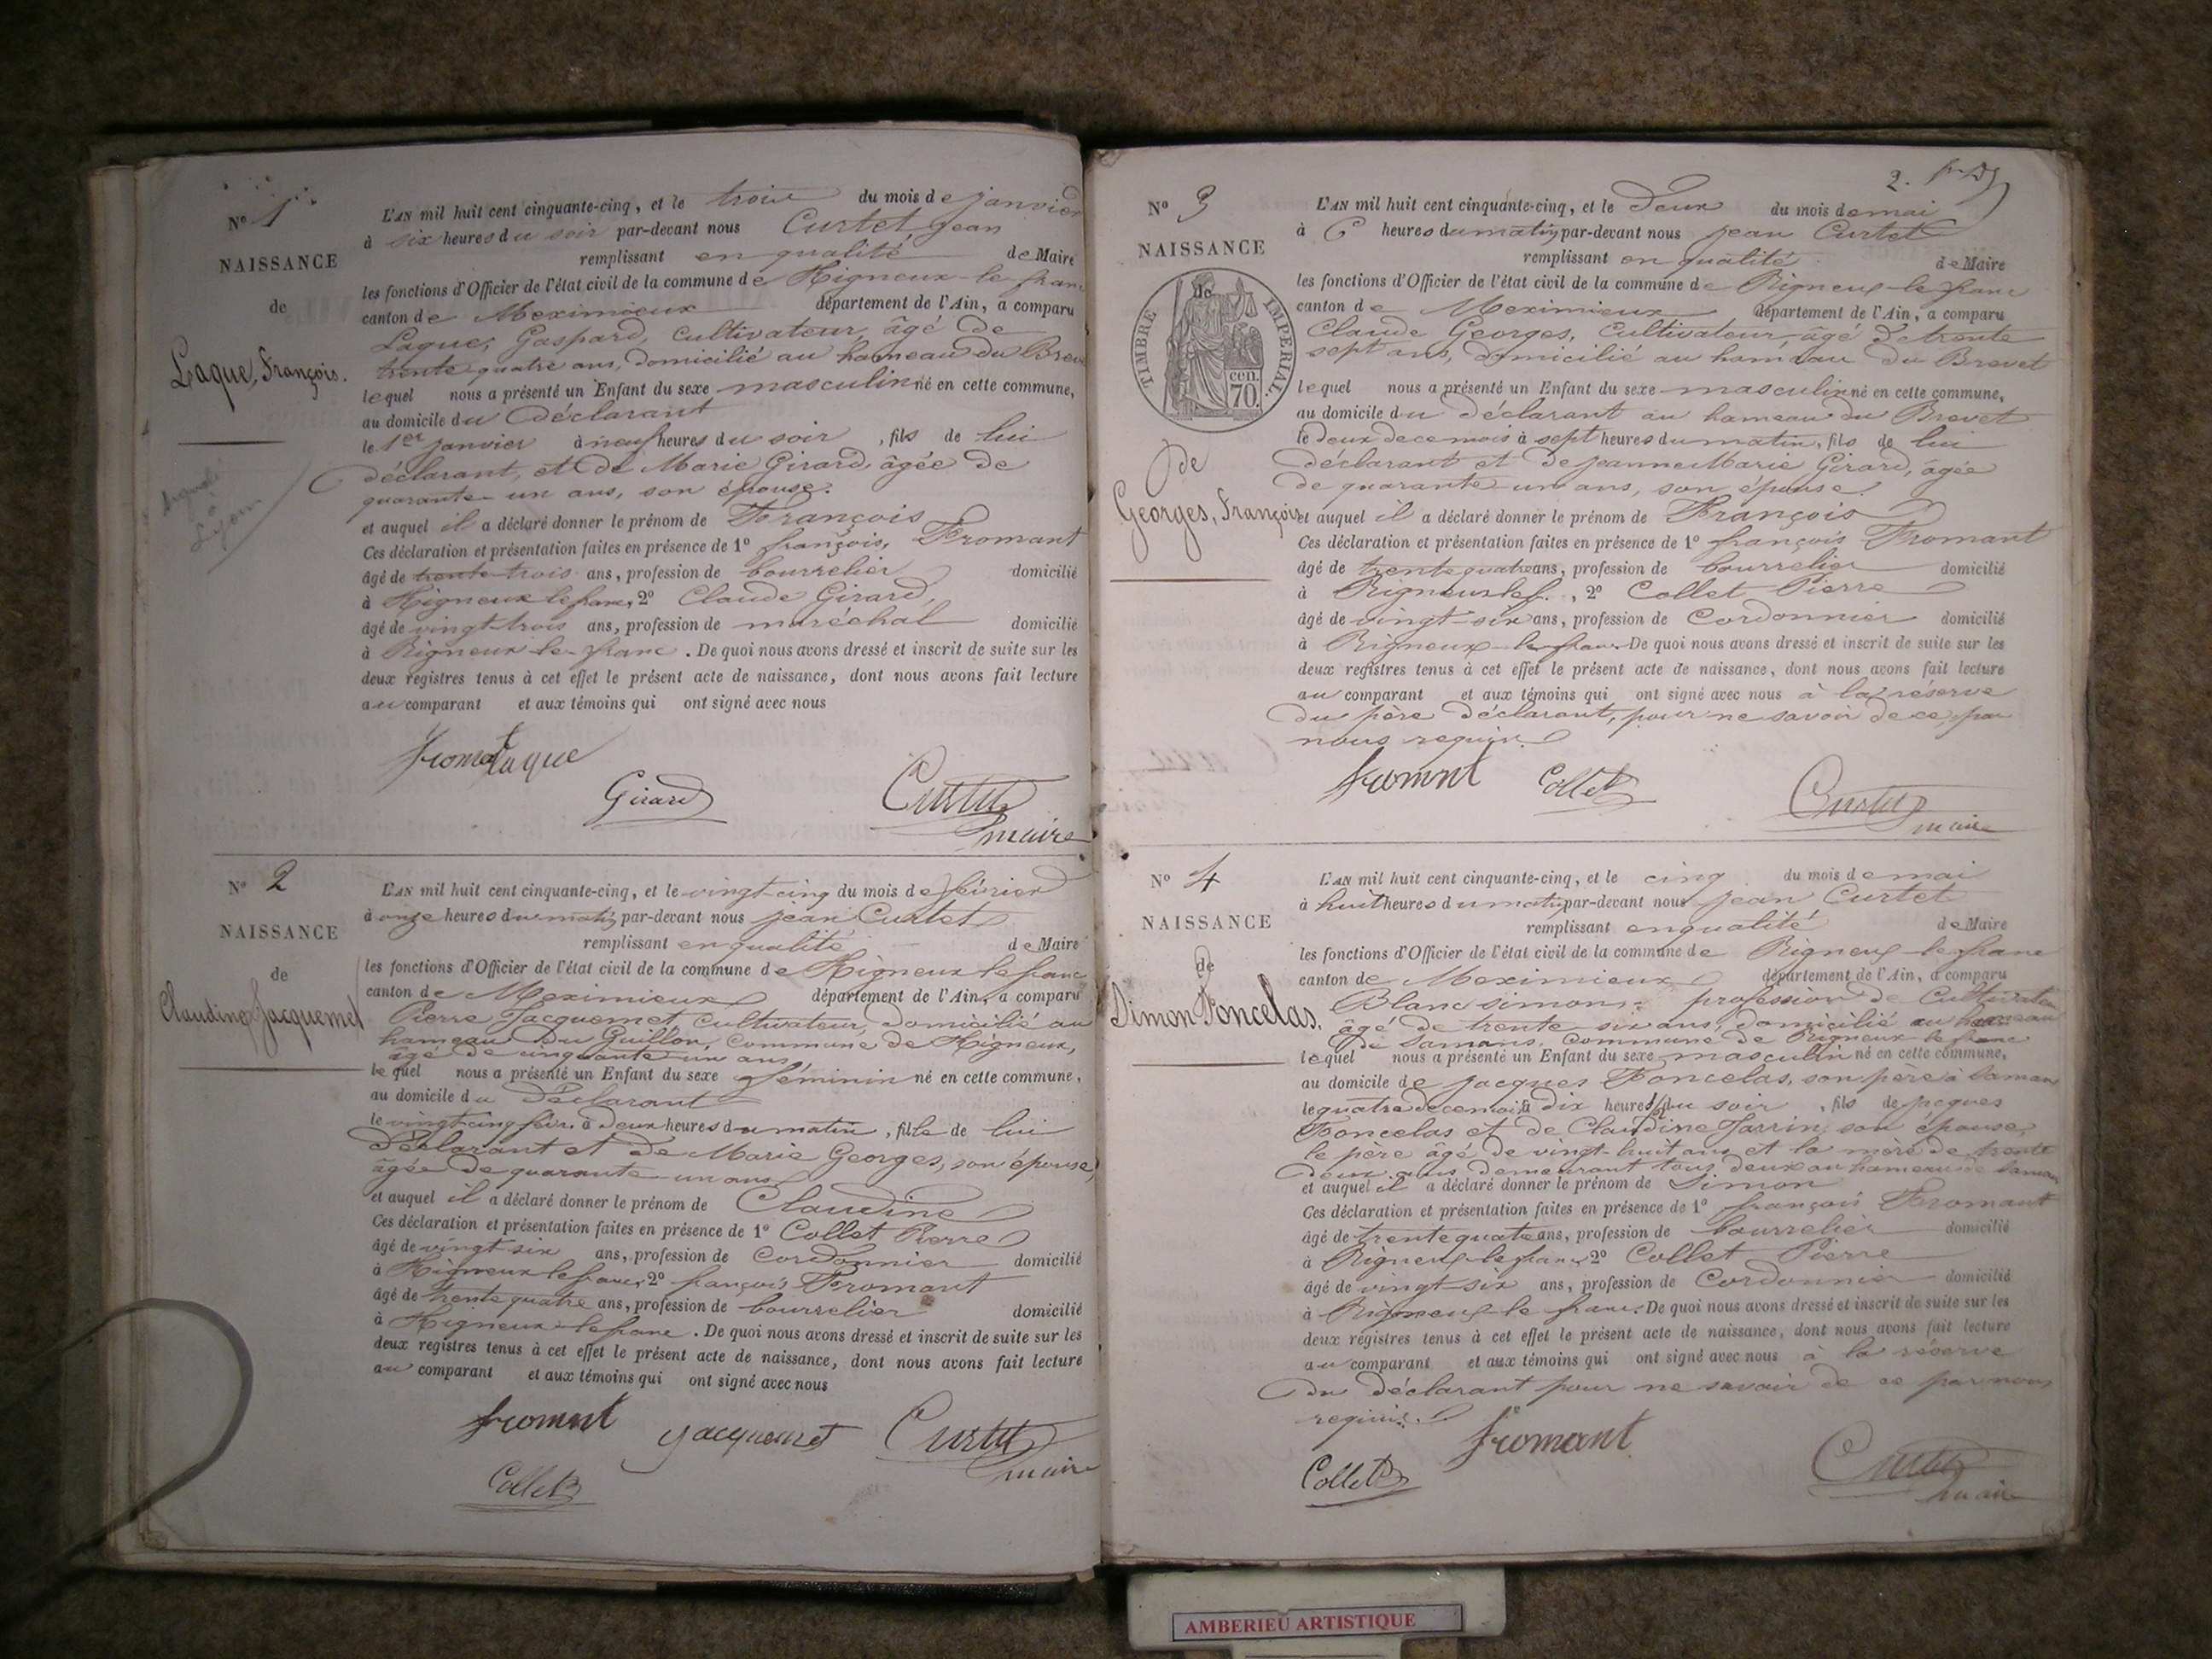 N° 1
NAISSANCE
de
Laque, François.
L'AN mil huit cent cinquante-cinq, et le trois du mois de janvier
à six heures du soir par-devant nous Curtet, jean
remplissant en qualité de Maire
les fonctions d'Officier de l'état civil de la commune de Rigneux-le-franc
canton de Meximieux département de l'Ain, a comparu
Laque, Gaspard, cultivateur, âgé de
trente quatre ans, domicilié au hameau du Brevet
lequel nous a présenté un Enfant du sexe masculin né en cette commune,
au domicile du déclarant
le 1er janvier à neuf heures du soir, fils de lui
déclarant, et de Marie Girard, âgée de
quarante-un ans, son épouse.
et auquel il a déclaré donner le prénom de François
Ces déclaration et présentation faites en présence de 1° françois, Fromant
âgé de trente-trois ans, profession de bourrelier domicilié
à Rigneux le franc, 2° Claude Girard,
âgé de vingt-trois ans, profession de maréchal domicilié
à Rigneux-le-franc. De quoi nous avons dressé et inscrit de suite sur les
deux registres tenus à cet effet le présent acte de naissance, dont nous avons fait lecture
au comparant et aux témoins qui ont signé avec nous
fromat Laque
Girard
Curtet
maire
N° 2
NAISSANCE
de
Claudine Jacquemet
L'AN mil huit cent cinquante-cinq, et le vingt-cinq du mois de février
à onze heures du matin par-devant nous jean Curtet
remplissant en qualité de Maire
les fonctions d'Officier de l'état civil de la commune de Rigneux le franc
canton de Meximieux département de l'Ain, a comparu
Pierre Jacquemet cultivateur, domicilié au
hameau du Guillon, Commune de Rigneux,
âgé de cinquante un ans
lequel nous a présenté un Enfant du sexe féminin né en cette commune,
au domicile du Déclarant
le vingt cinq févr. à deux heures du matin, fille de lui
Déclarant et de Marie Georges, son épouse,
âgée de quarante-un ans
et auquel il a déclaré donner le prénom de Claudine
Ces déclaration et présentation faites en présence de 1° Collet Pierre
âgé de vingt-six ans, profession de Cordonnier domicilié
à Rigneux le franc, 2° françois Fromant
âgé de trente quatre ans, profession de bourrelier domicilié
à Rigneux-le franc. De quoi nous avons dressé et inscrit de suite sur les
deux registres tenus à cet effet le présent acte de naissance, dont nous avons fait lecture
au comparant et aux témoins qui ont signé avec nous
fromnt jacquemet Curtet
maire
Collet
2.
N° 3
NAISSANCE
de
TIMBRE IMPERIAL.
cen.
70.
de
Georges, François
L'AN mil huit cent cinquante-cinq, et le Deux du mois de mai
à 6 heures du matin par-devant nous jean Curtet
remplissant en qualité de Maire
les fonctions d'Officier de l'état civil de la commune de Rigneux-le-franc
canton de Meximieux département de l'Ain, a comparu
Claude Georges, Cultivateur, âgé de trente
sept ans, domicilié au hameau du Brevet
lequel nous a présenté un Enfant du sexe masculin né en cette commune,
au domicile du déclarant au hameau du Brevet
le deux de ce mois à sept heures du matin, fils de lui
déclarant et de jeanne Marie Girard, âgée
de quarante-un ans, son épouse.
et auquel il a déclaré donner le prénom de François
Ces déclaration et présentation faites en présence de 1° françois Fromant
âgé de trente quatre ans, profession de bourrelier domicilié
à Rigneux le f., 2° Collet Pierre
âgé de vingt-six ans, profession de Cordonnier domicilié
à Rigneux-le-franc De quoi nous avons dressé et inscrit de suite sur les
deux registres tenus à cet effet le présent acte de naissance, dont nous avons fait lecture
au comparant et aux témoins qui ont signé avec nous à la réserve
du père déclarant, pour ne savoir de ce, par
nous requis.
fromnt Collet Curtet
maire
N° 4
NAISSANCE
de
Simon Foncelas.
L'AN mil huit cent cinquante-cinq, et le cinq du mois de mai
à huit heures du matin par-devant nous jean Curtet
remplissant en qualité de Maire
les fonctions d'Officier de l'état civil de la commune de Rigneux-le-franc
canton de Meximieux département de l'Ain, a comparu
Blanc simon, profession de Cultivateur
âgé de trente six ans, domicilié au hameau
de Samans, Commune de Rigneux le franc
lequel nous a présenté un Enfant du sexe masculin né en cette commune,
au domicile de jacques Foncelas, son père à Samans
le quatre de ce mois à dix heures du soir, fils de jacques
Foncelas et de Claudine Jarrin, son épouse,
le père âgé de vingt-huit ans et la mère de trente
deux ans demeurant tous deux au hameau de Samans
et auquel il a déclaré donner le prénom de Simon
Ces déclaration et présentation faites en présence de 1° françois Fromant
âgé de trente quatre ans, profession de bourrelier domicilié
à Rigneux-le-franc, 2° Collet Pierre
âgé de vingt-six ans, profession de Cordonnier domicilié
à Rigneux-le franc. De quoi nous avons dressé et inscrit de suite sur les
deux registres tenus à cet effet le présent acte de naissance, dont nous avons fait lecture
au comparant et aux témoins qui ont signé avec nous à la réserve
du déclarant pour ne savoir de ce par nous
requis.
fromant
Collet
Curtet
maire
AMBERIEU ARTISTIQUE